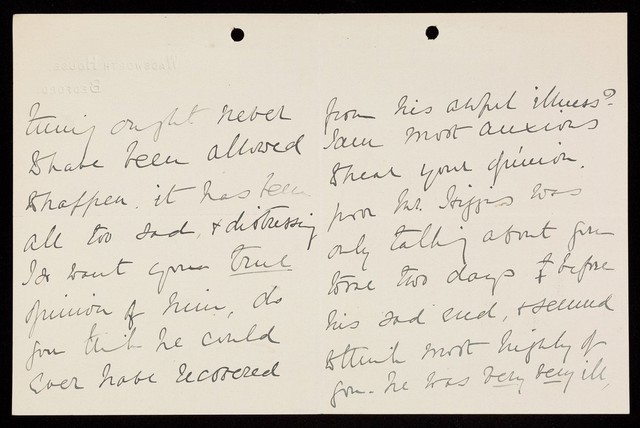 thing ought never
to have been allowed
to happen. it has been
all too sad, & distressing
I do want your true
opinion of him, do
you think he could
ever have recovered
from his awful illness?
I am most anxious
to hear your opinion.
poor Mr. Higgins was
only talking about you
some two days before
his sad end, & seemed
to think most highly of
you. he was very very ill,